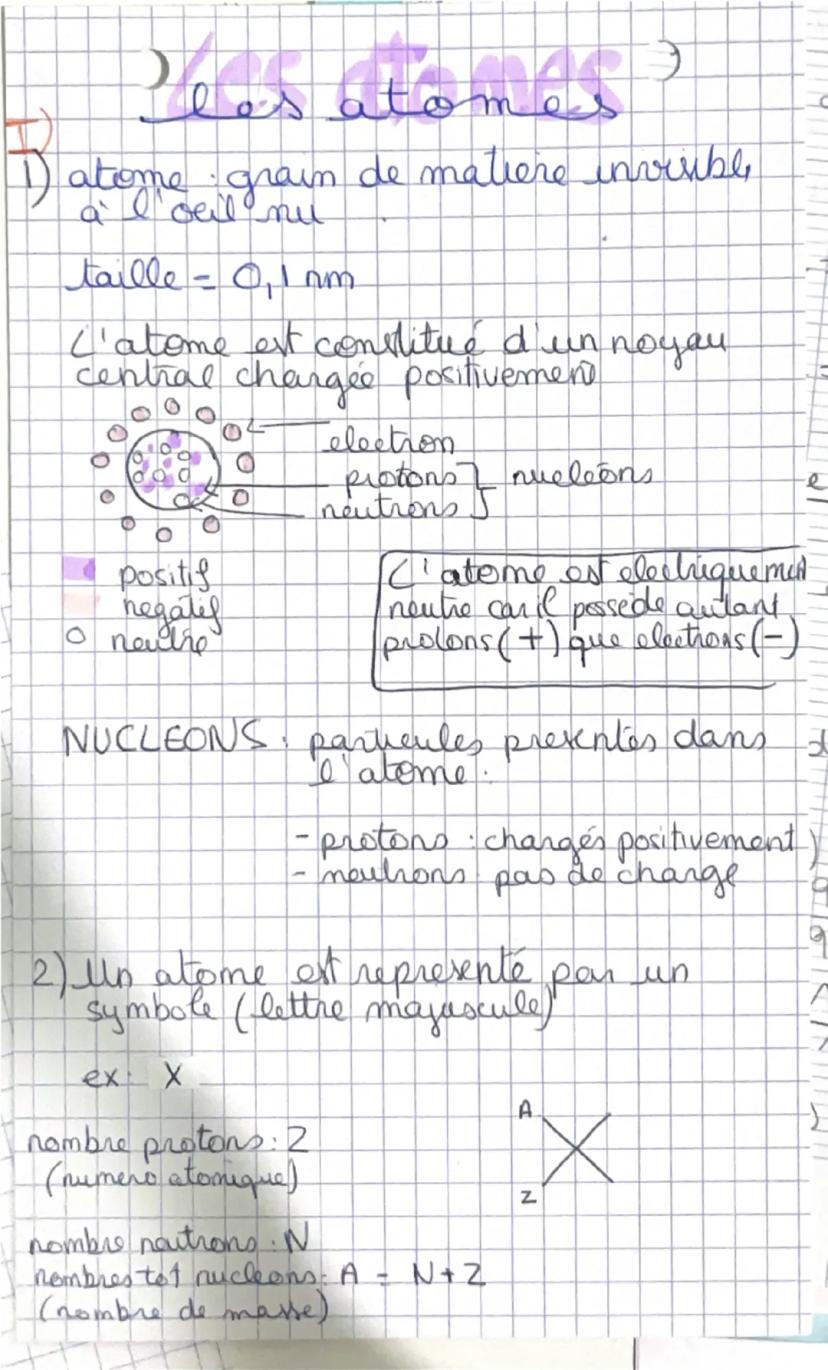 Les atomes
les atomes
I)
1) atome : grain de matiere invisible
à l'oeil nu
taille = 0,1 nm
L'atome est constitué d'un noyau
central chargée positivement
electron
protons } nucleons
neutrons
positif
negatif
neutre
L'atome est electriquement
neutre car il possède autant
protons (+) que electrons (-)
NUCLEONS : particules presentes dans
l'atome.
- protons : chargés positivement
- neutrons pas de charge
2) Un atome est representé par un
symbole (lettre majuscule)
ex: X
nombre protons : Z
(numero atomique)
A
X
Z
nombre neutrons : N
nombres tot nucleons: A = N+Z
(nombre de masse)